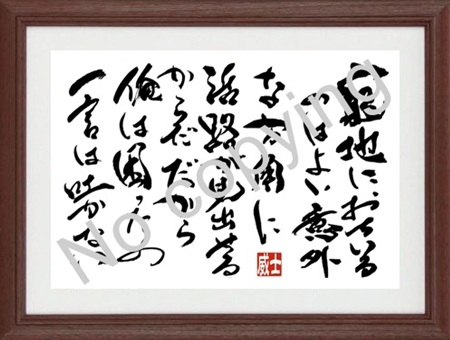 窮地におちいる
のはよい意外
な方角に
活路が見出せる
からだだから
俺は困ったの
一言は吐かない
威士
No copying